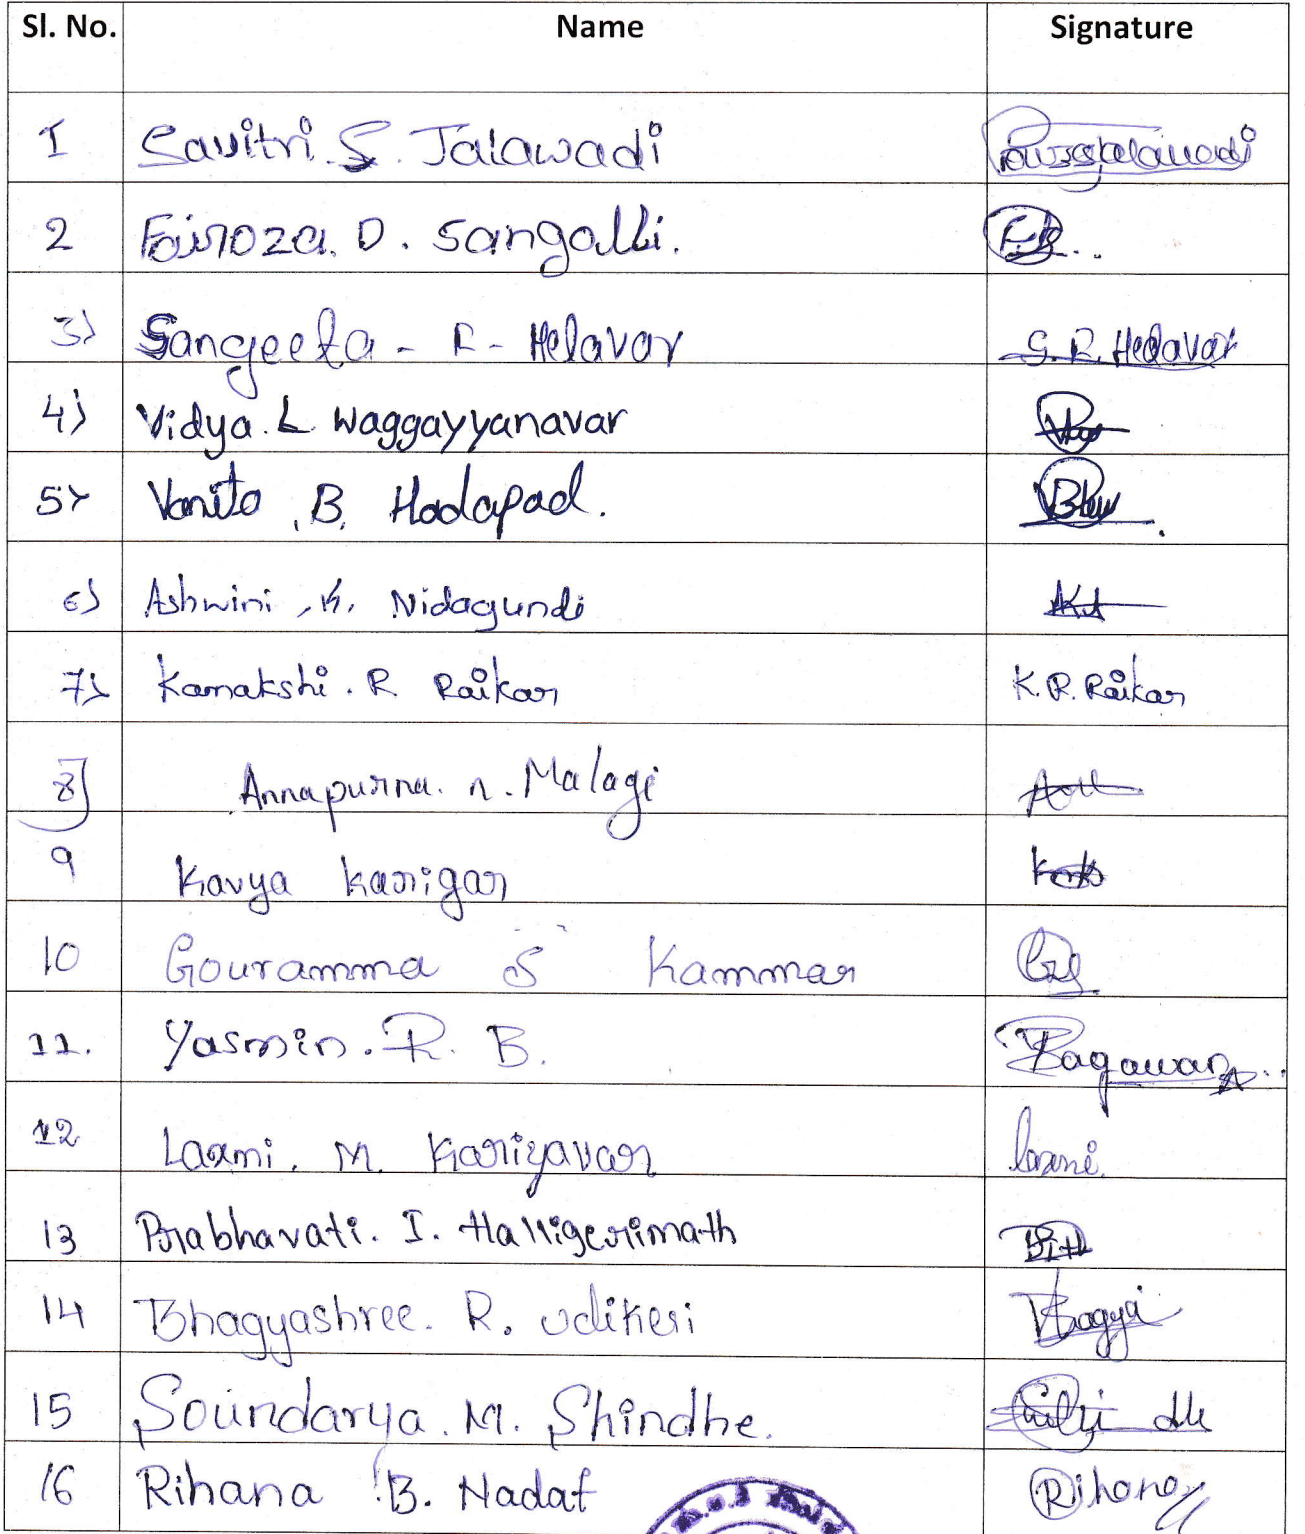 Sl. No. Name Signature
1 Savitri. S. Jalawadi
2 Fairoza. D. Sangolli.
3) Sangeeta - R - Helavar G. R. Helavar
4) Vidya. L Waggayyanavar
5> Vanita .B. Hadapad.
6) Ashwini .K. Nidagundi
7) Kamakshi. R Raikar K. R. Raikar
8] Annapurna. n. Malagi
9 Kavya Karigar
10 Gouramma S Kammar
11. Yasmin. R. B. Bagawan
12 Laxmi. M. Kariyavar laxmi.
13 Prabhavati. I. Halligerimath
14 Bhagyashree. R. Udikeri Bhagya
15 Soundarya. M. Shindhe.
16 Rihana B. Nadaf Rihana